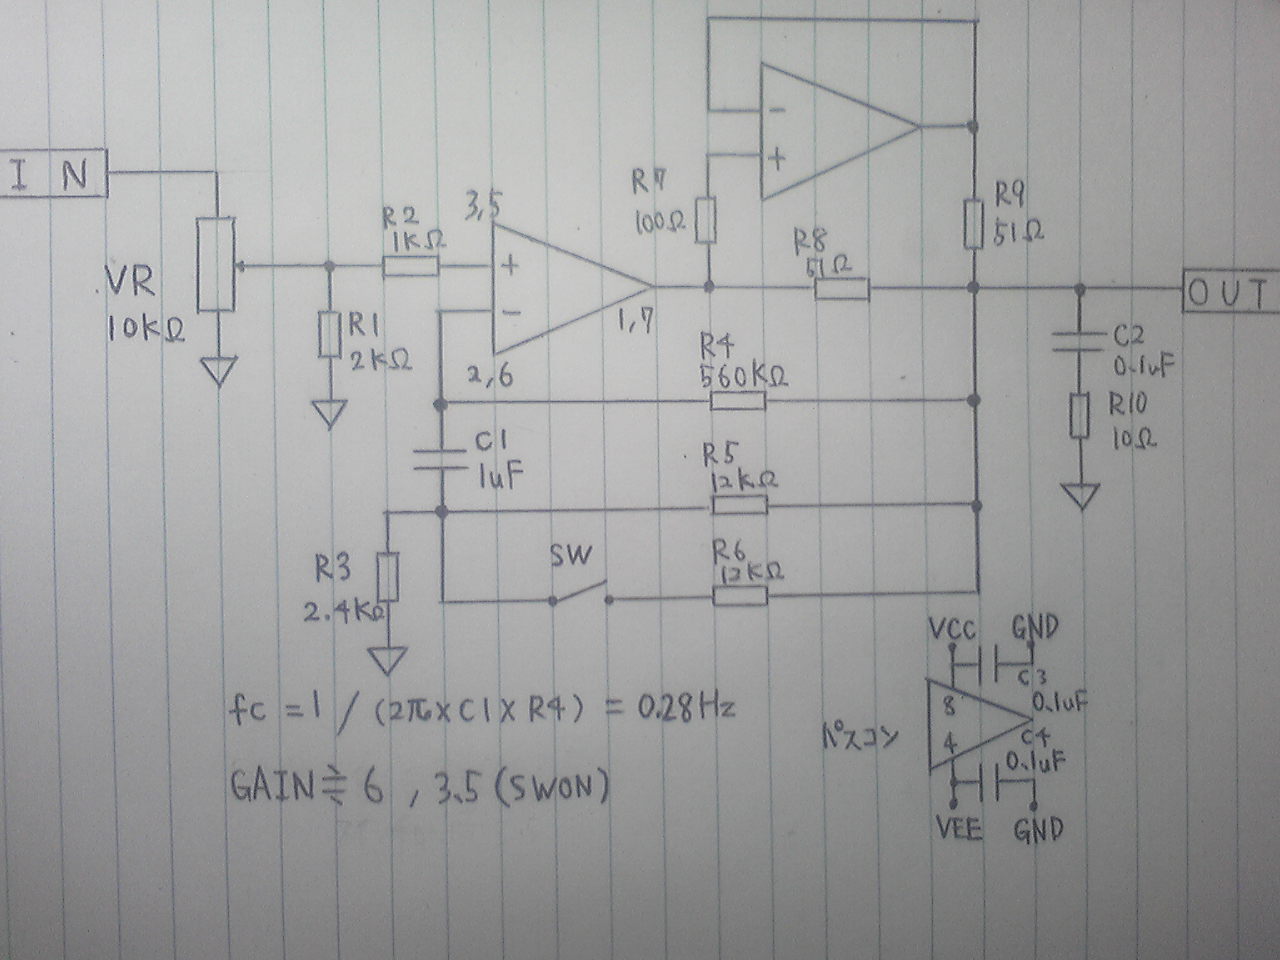 IN
VR
10KΩ
R1
2KΩ
R2
1KΩ
3,5
+
-
2,6
1,7
R7
100Ω
-
+
R8
51Ω
R9
51Ω
OUT
C2
0.1uF
R10
10Ω
R4
560KΩ
C1
1uF
R5
12KΩ
R3
2.4KΩ
SW
R6
12KΩ
fc = 1 / (2π×C1×R4) = 0.28Hz
GAIN≒6 , 3.5 (SWON)
パスコン
VCC GND
C3
0.1uF
8
4
C4
0.1uF
VEE GND